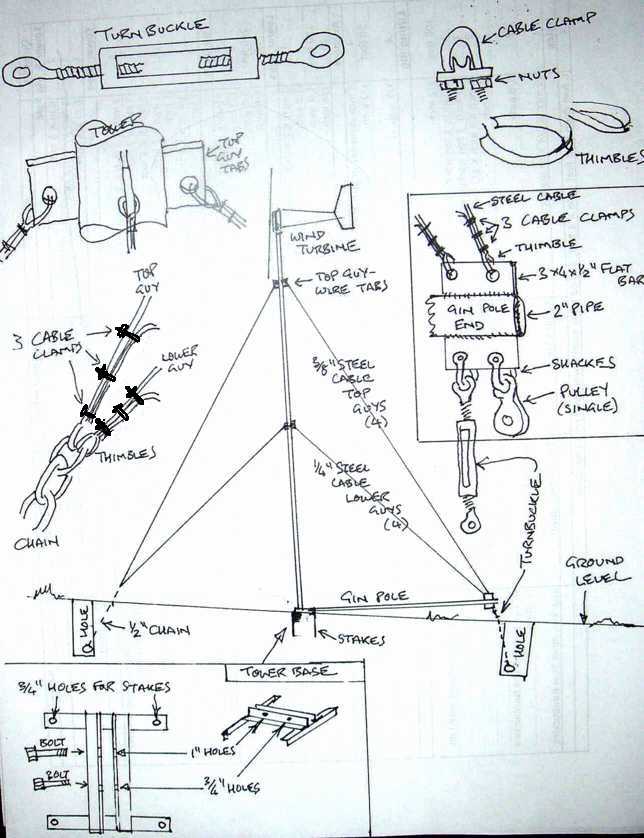 TURNBUCKLE
CABLE CLAMP
NUTS
THIMBLES
TOWER
TOP
GUY
TABS
STEEL CABLE
3 CABLE CLAMPS
THIMBLE
3x4x½" FLAT
BAR
GIN POLE
END
2" PIPE
SHACKES
PULLEY
(SINGLE)
WIND
TURBINE
TOP GUY-
WIRE TABS
TOP
GUY
3 CABLE
CLAMPS
LOWER
GUY
THIMBLES
CHAIN
3/8" STEEL
CABLE
TOP
GUYS
(4)
¼" STEEL
CABLE
LOWER
GUYS
(4)
TURNBUCKLE
GROUND
LEVEL
GIN POLE
HOLE
½" CHAIN
STAKES
HOLE
TOWER BASE
3/4" HOLES FOR STAKES
BOLT
BOLT
1" HOLES
3/4" HOLES